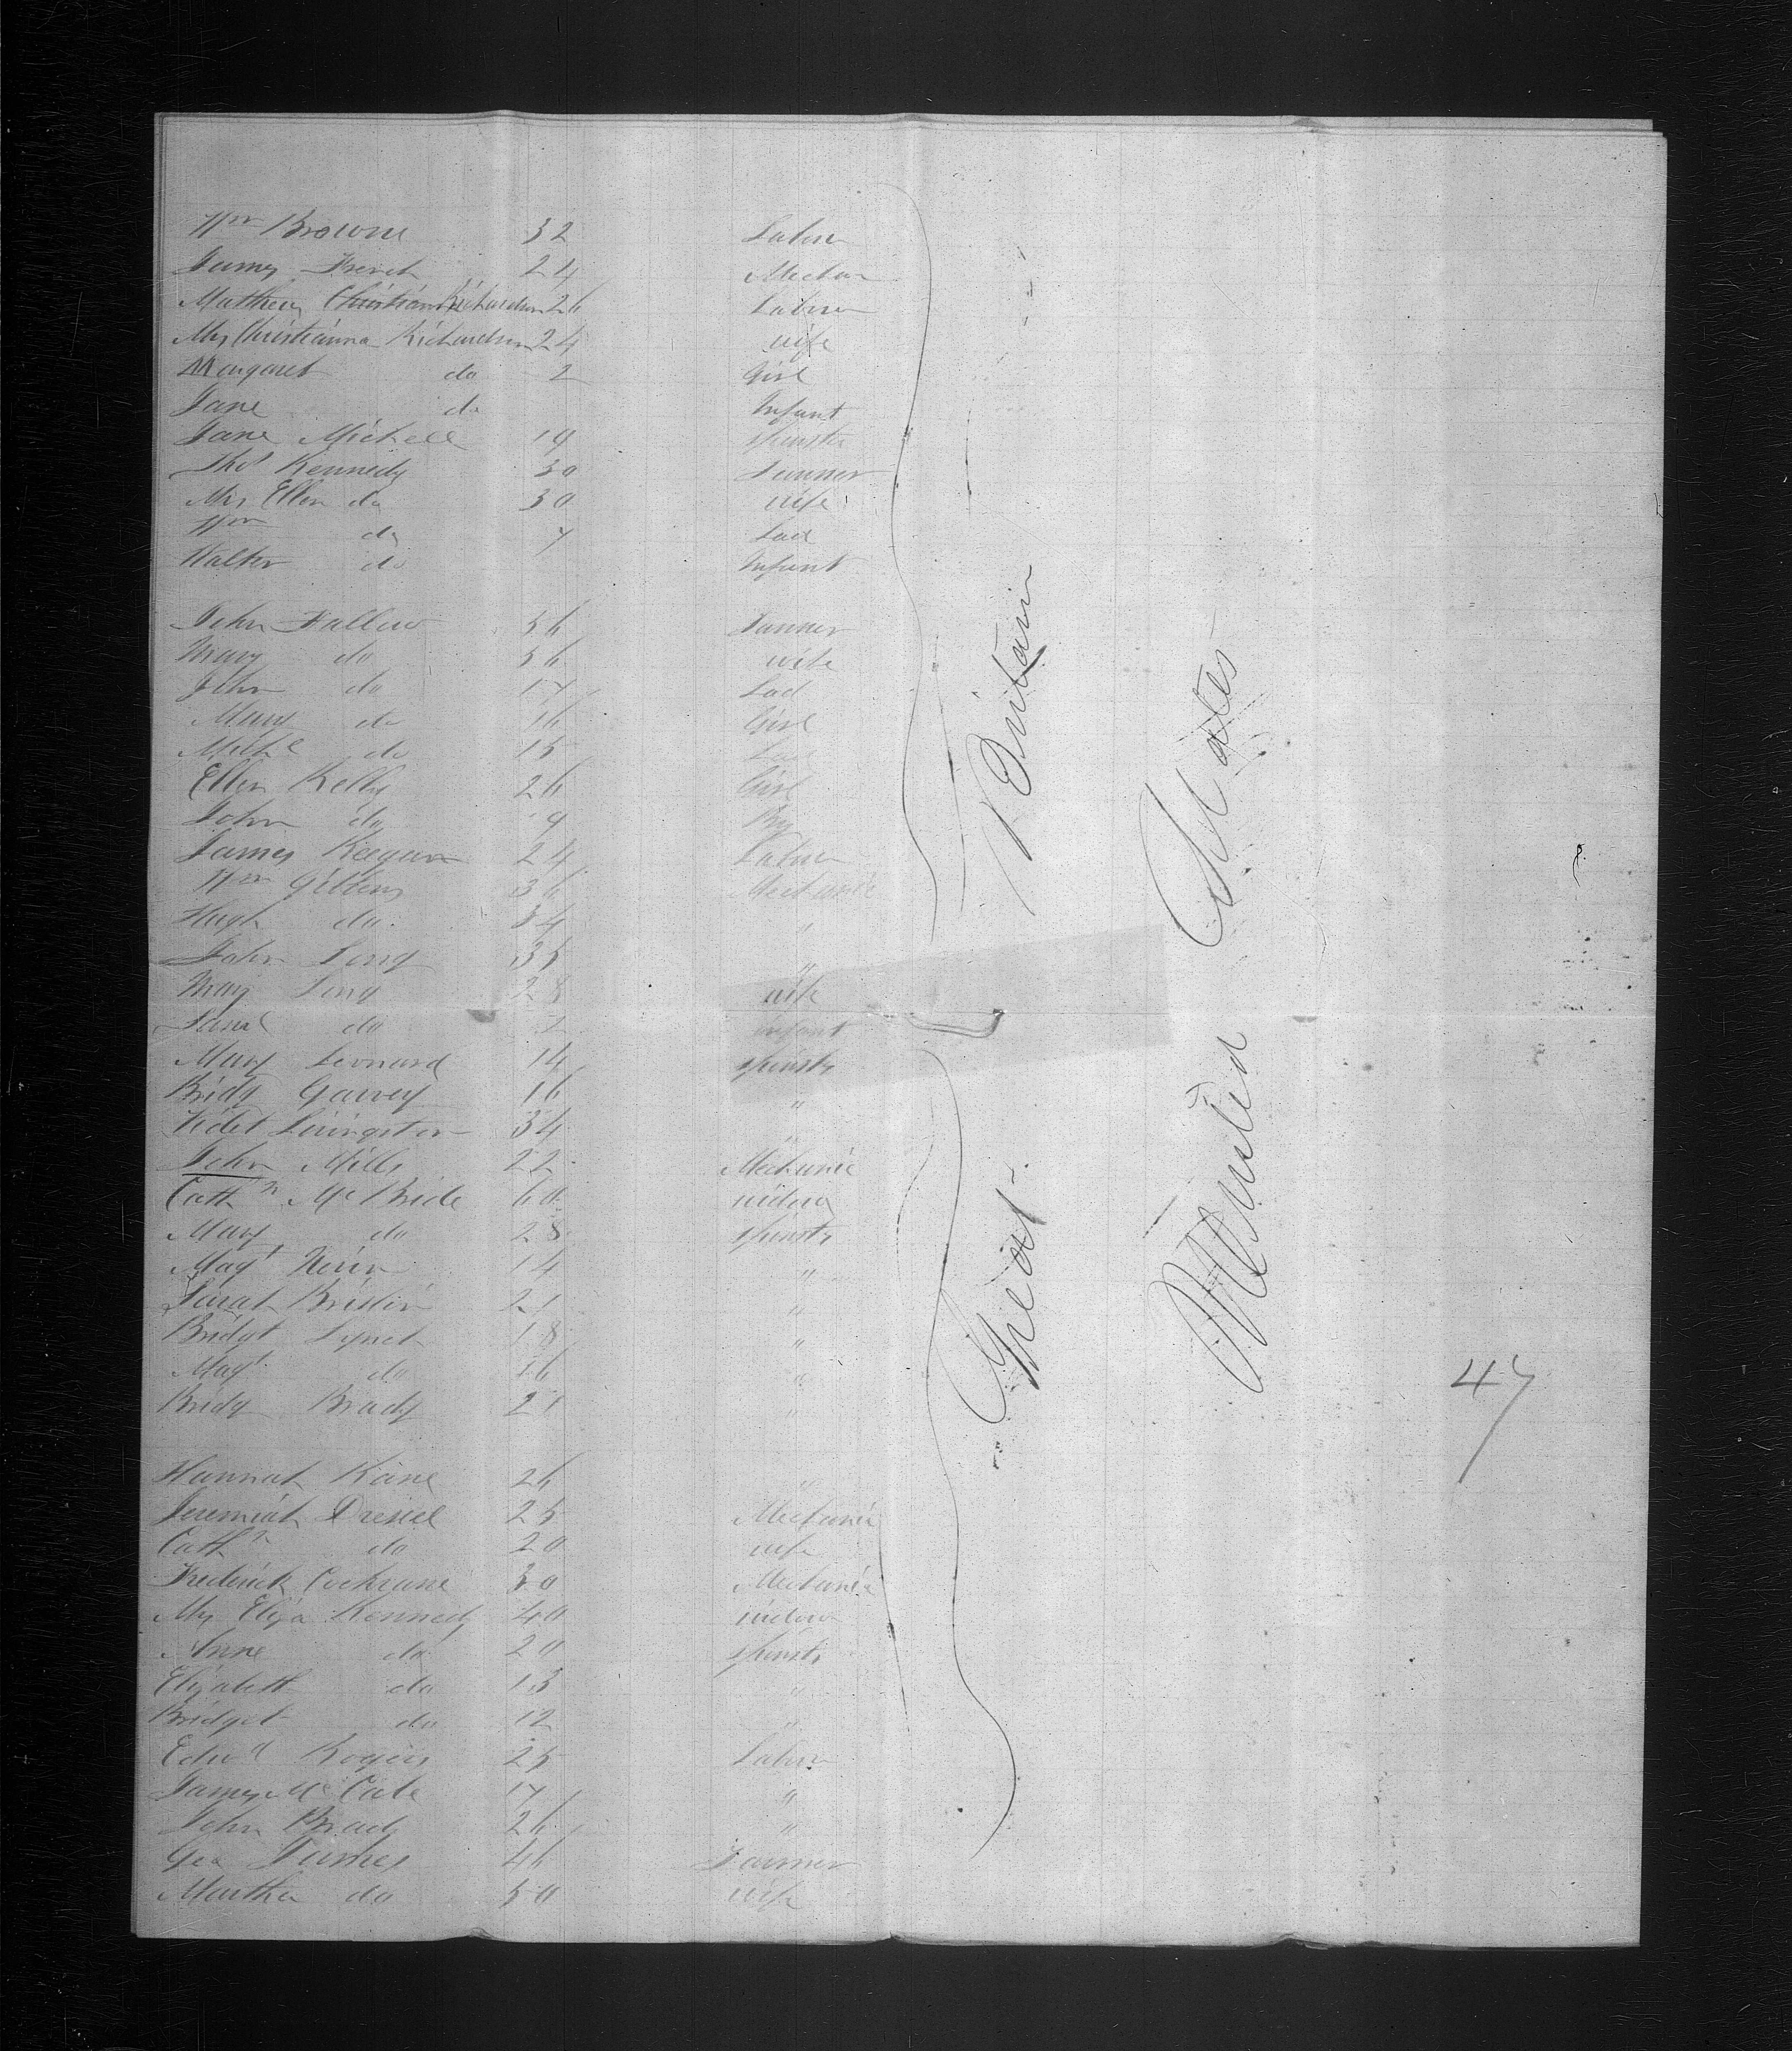 Wm Browne 32 Labrer
James French 24 Mechan
Mathew Christian Richardson 26 Labrer
Mrs Christianna Richardson 24 wife
Margaret do 2 Girl
Jane do Infant
Jane Michell 19 spinster
Thos Kennedy 30 Farmer
Mrs Ellen do 30 wife
Wm do 7 Lad
Walter do Infant
John Fallow 56 Farmer
Mary do 56 wife
John do 17 Lad
Mary do 16 Girl
Michl do 15 Lad
Ellen Kelly 26 Girl
John do 9 Boy
James Keegan 24 Labrer
Wm Gittens 36 Mechanic
Hugh do 34 "
John Long 35 "
Mary Long 28 wife
do infant
Mary Leonard 14 spinstr
Bridgt Garvey 16 "
Livingston 34 "
John Mills 22 Mechanic
Cathn McBride 60 widow
Mary do 28 spinstr
Magt 14 "
Sarah 21 "
Bridgt Lynch 18 "
Magt do 16 "
Bridgt Brady 21 "
Hannah Kane 26 "
Jeremiah 25 Mechanic
Cathn do 20 wife
Frederick Cochrane 30 Mechanic
Mrs Eliza Kennedy 40 widow
Anne do 20 spinstr
Elizabeth do 13 "
Bridget do 12 "
Edwd Rogers 25 Labrer
James McCabe 17 "
John Brady 26 "
Geo James 46 Farmer
Martha do 50 wife
Great Britain
United States
47